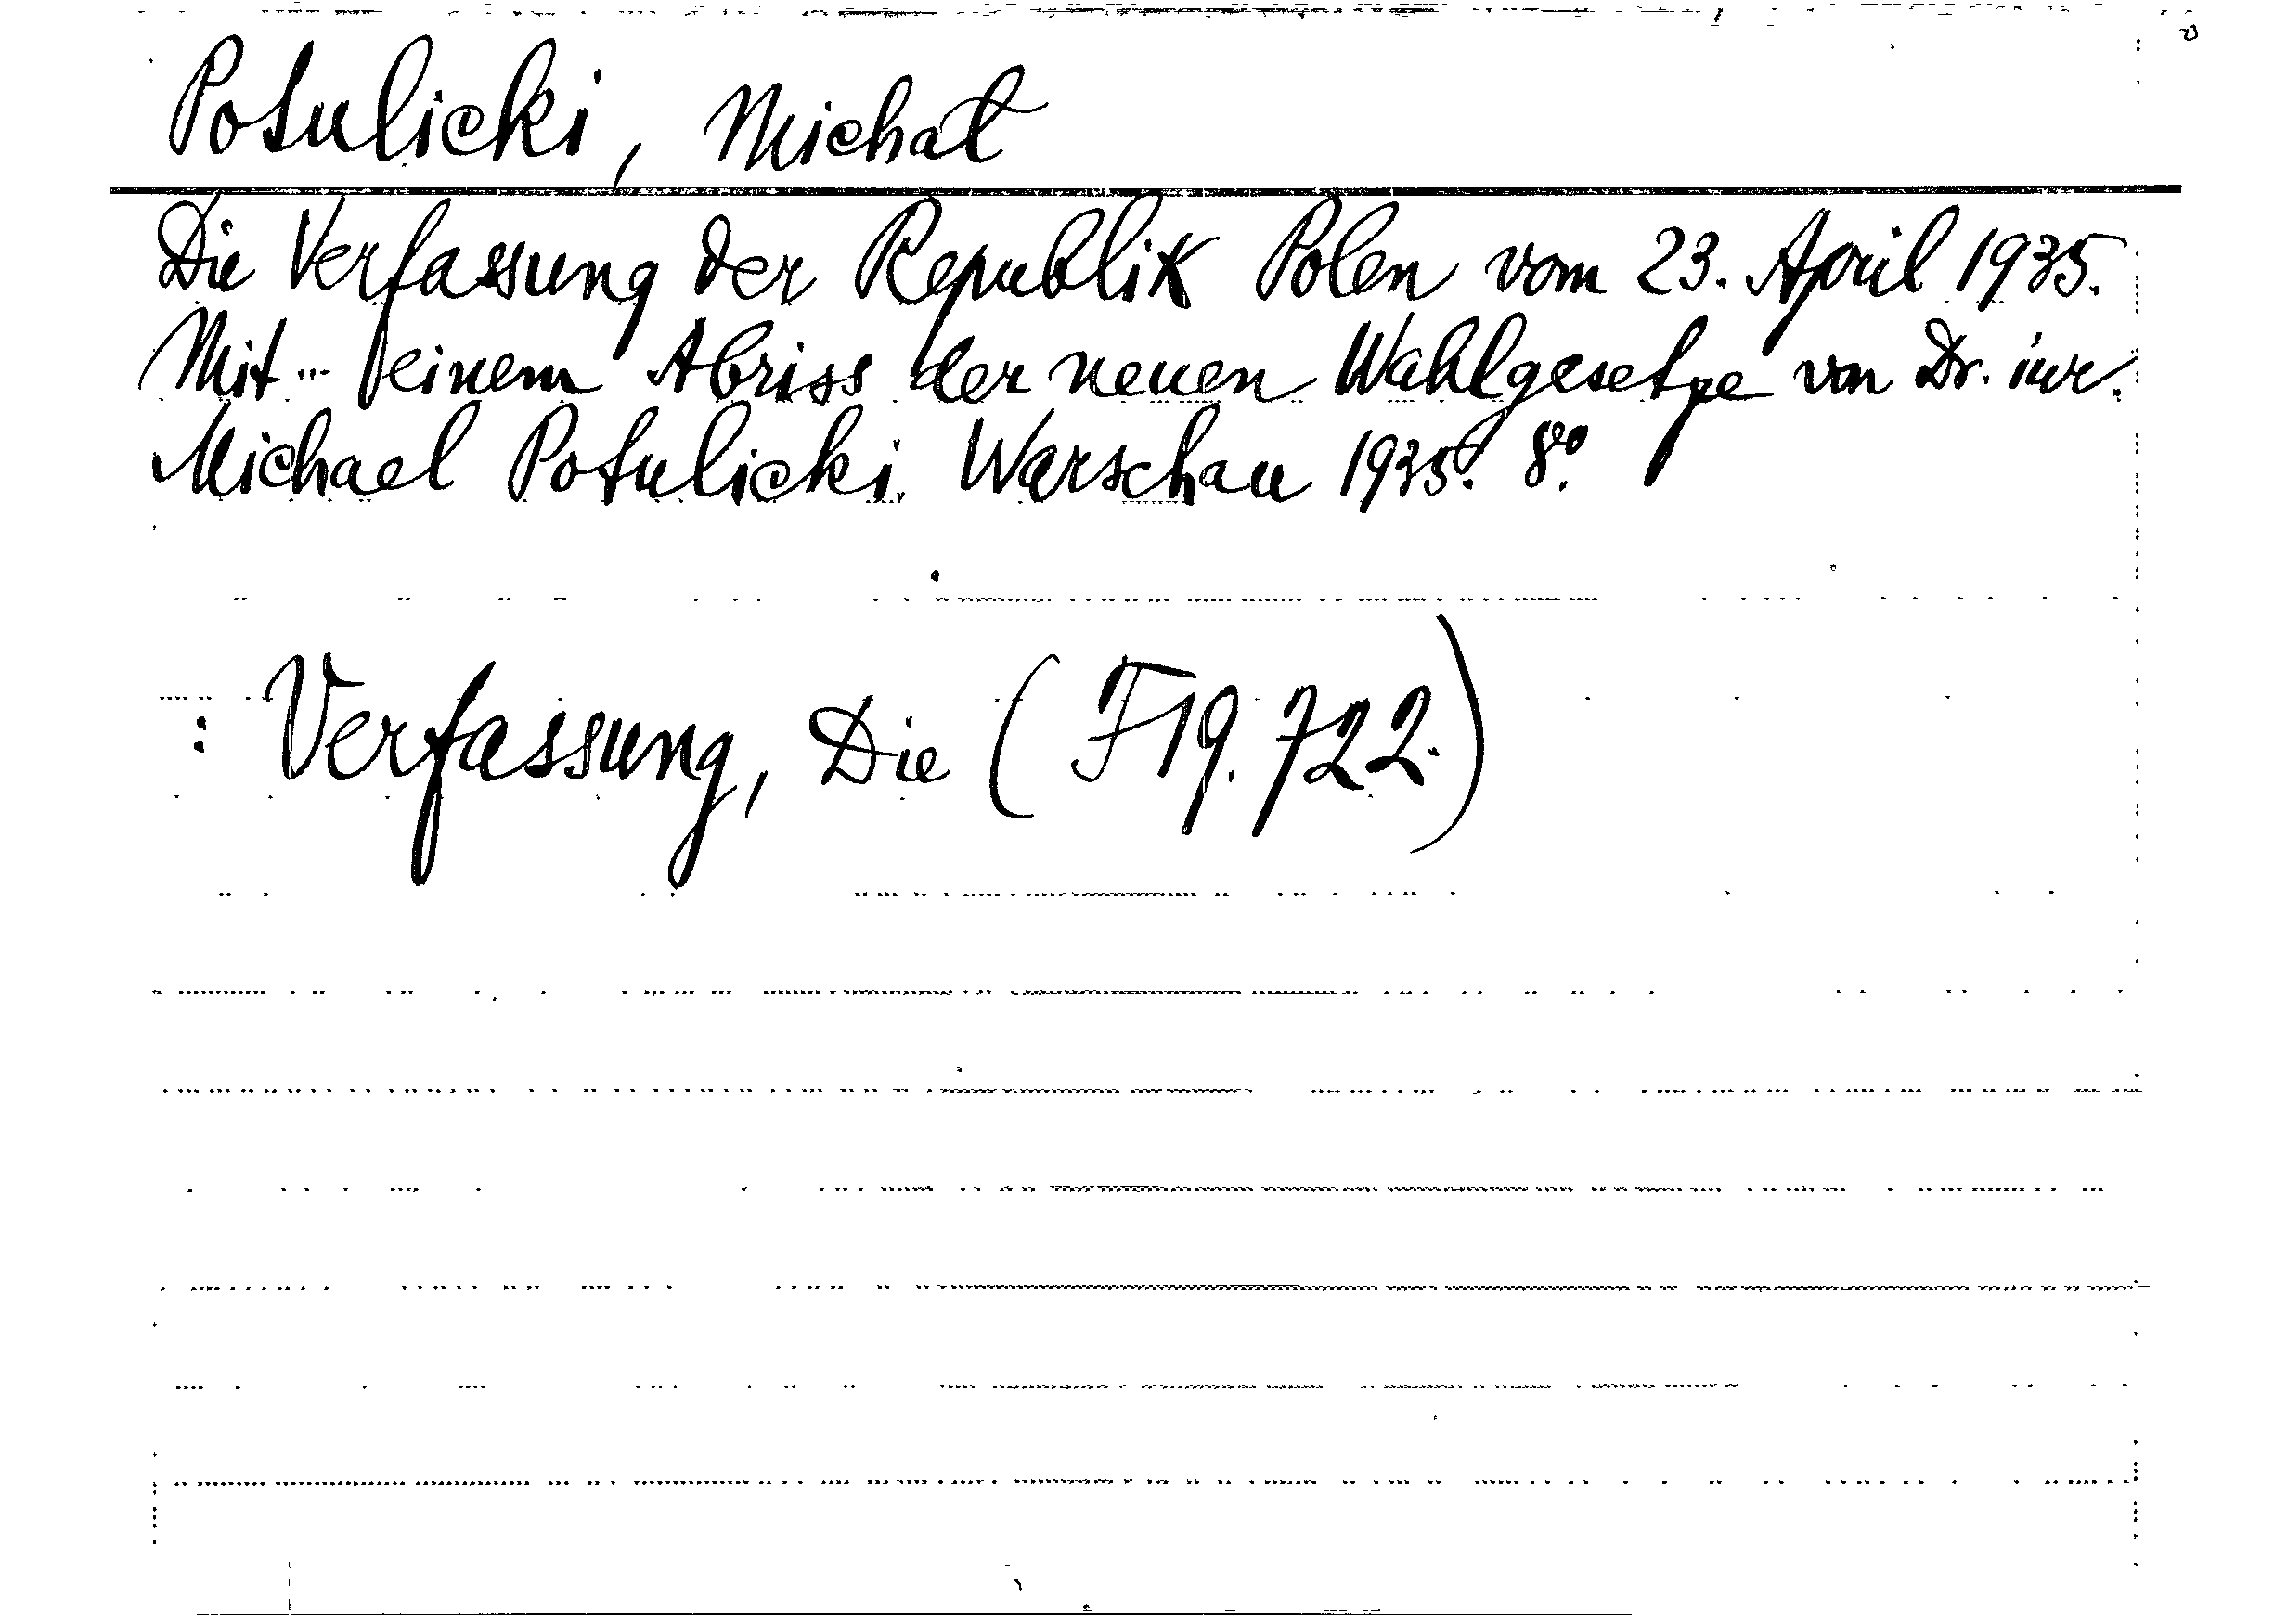 Potulicki, Michał
Die Verfassung der Republik Polen vom 23. April 1935.
Mit ... einem Abriss der neuen Wahlgesetze von Dr. iur.
Michael Potulicki. Warschau 1935. 8º.
: Verfassung, Die (F19.722.)